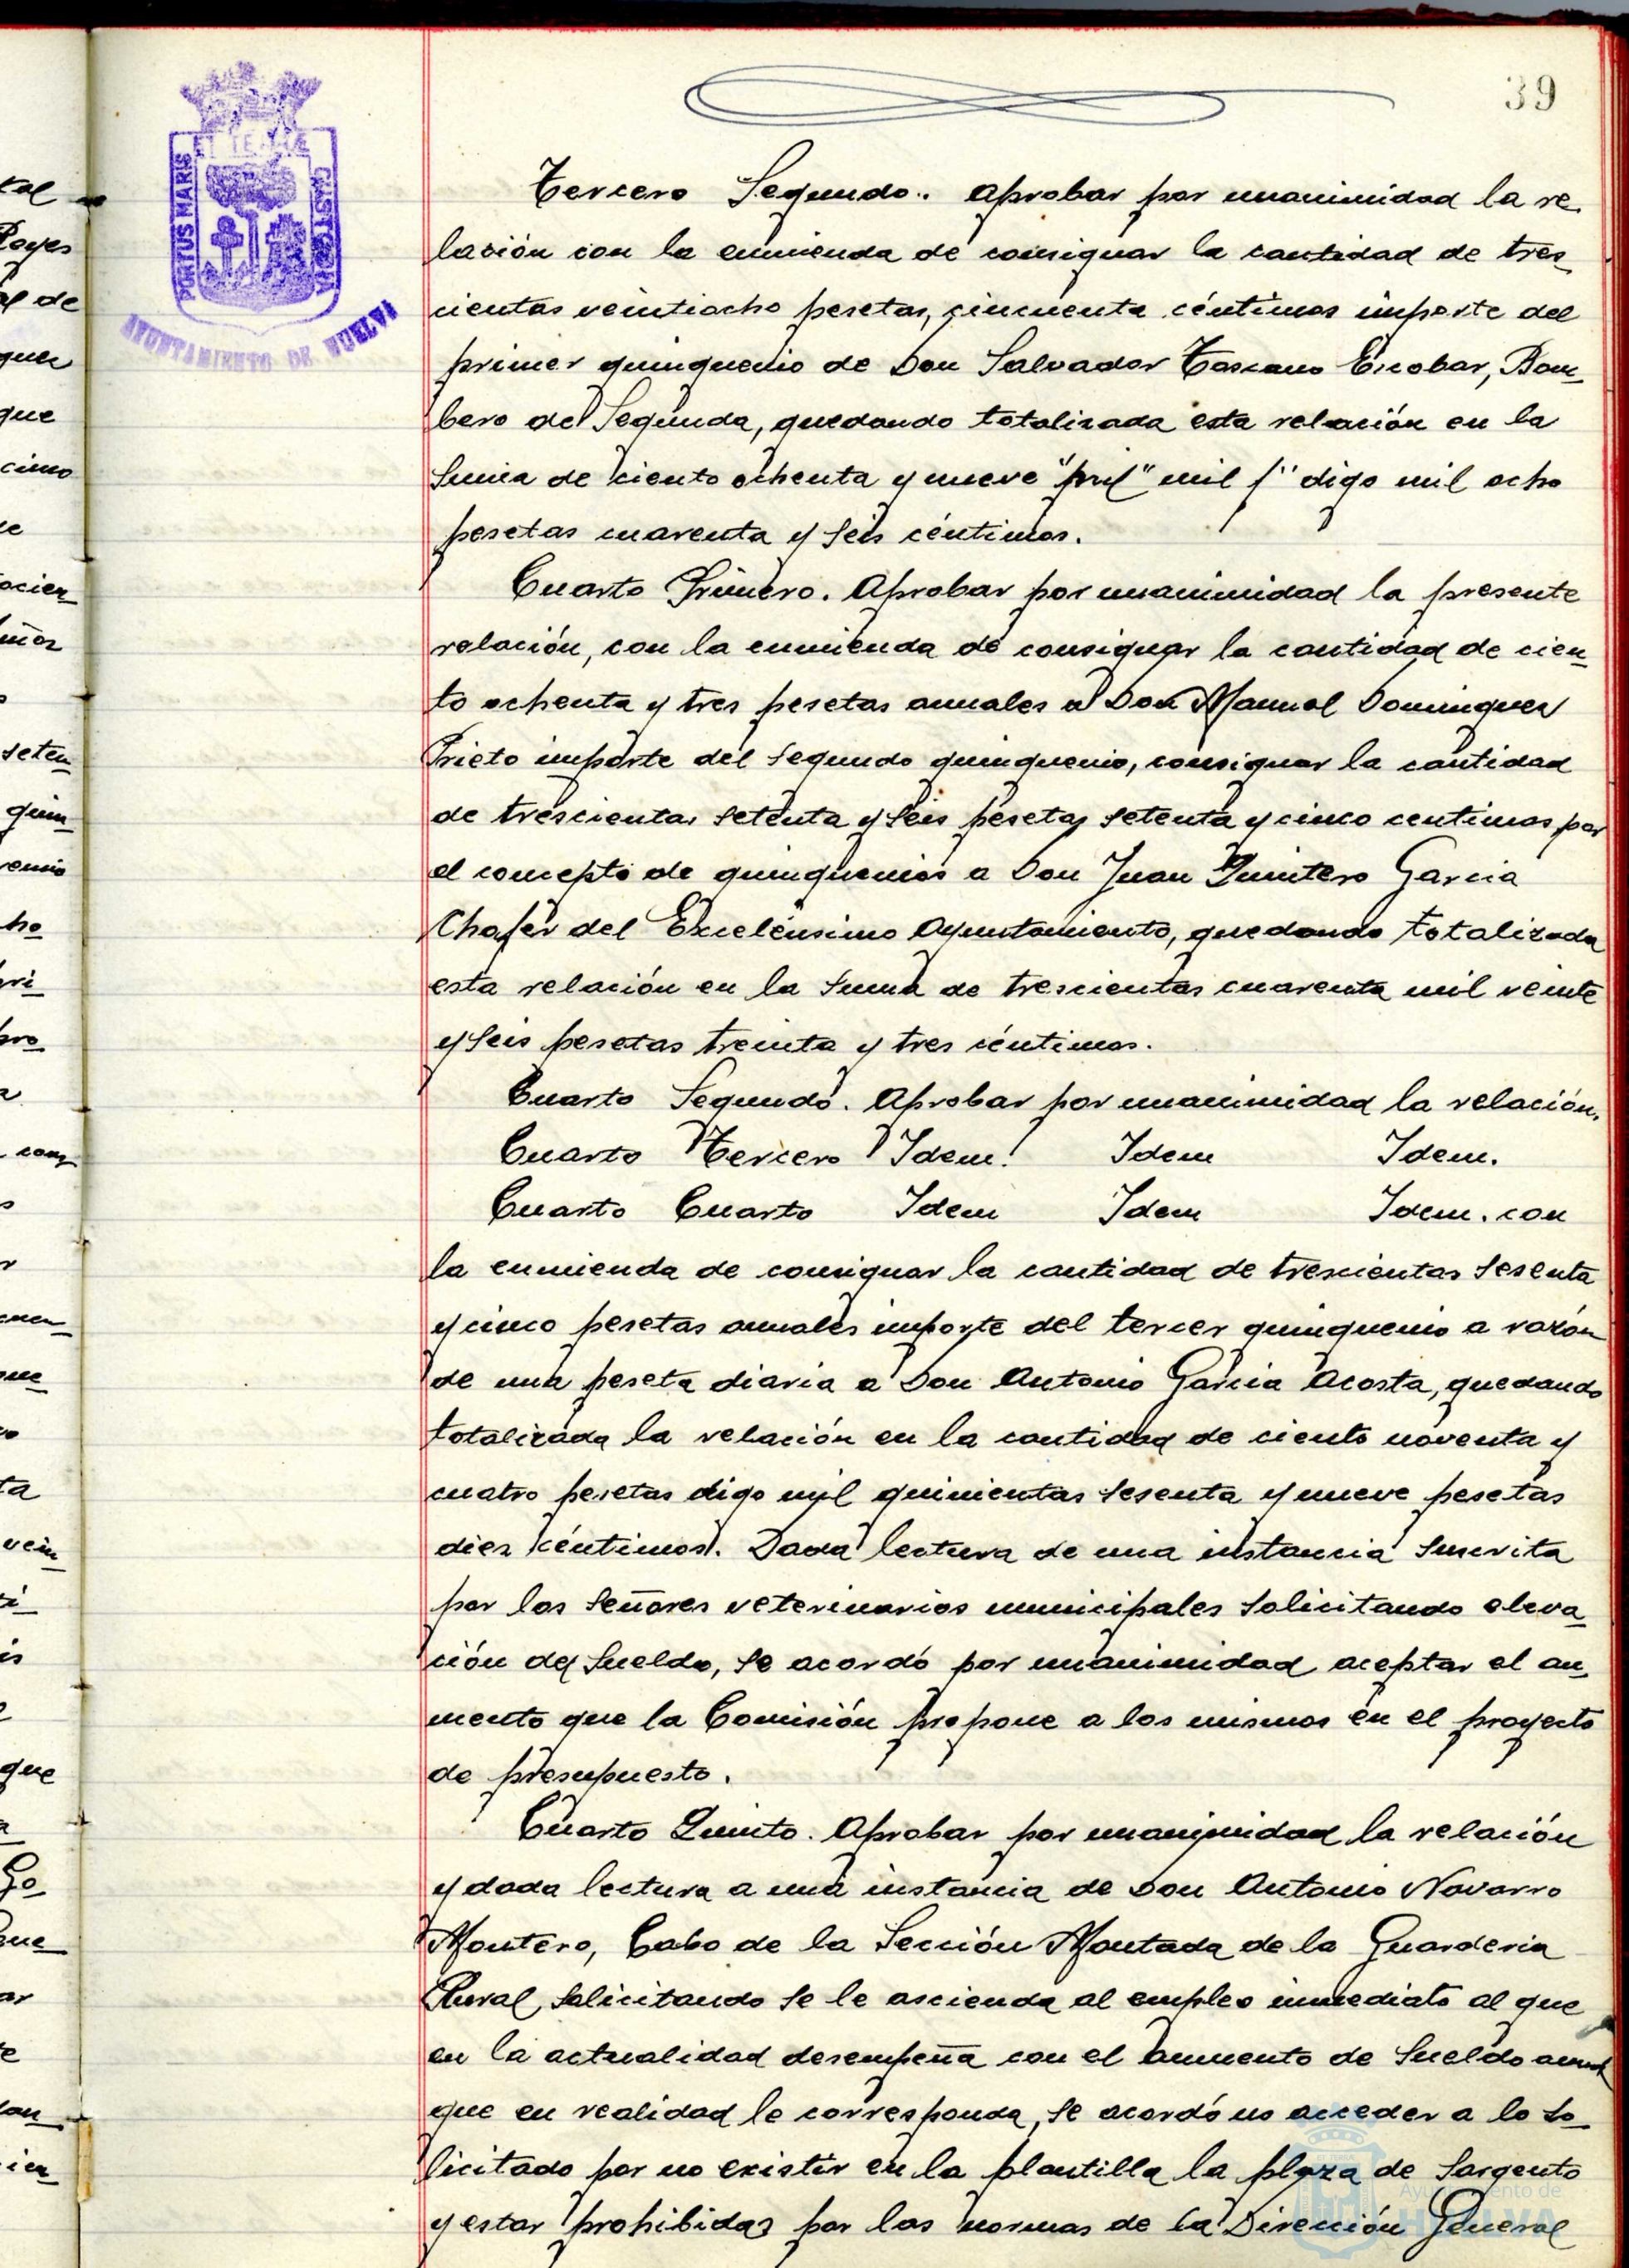 39
PORTUS MARIS ET TERRÆ CUSTODIA
AYUNTAMIENTO DE HUELVA
Tercero Segundo. Aprobar por unanimidad la re-
lación con la enmienda de consignar la cantidad de tres-
cientas veintiocho pesetas, cincuenta céntimos importe del
primer quinquenio de Don Salvador Toscano Escobar, Bom-
bero de Segunda, quedando totalizada esta relación en la
suma de ciento ochenta y nueve "mil" mil /" digo mil ocho
pesetas cuarenta y seis céntimos.
Cuarto Primero. Aprobar por unanimidad la presente
relación, con la enmienda de consignar la cantidad de cien-
to ochenta y tres pesetas anuales a Don Manuel Dominguez
Prieto importe del segundo quinquenio, consignar la cantidad
de trescientas setenta y seis pesetas setenta y cinco centimos por
el concepto de quinquenios a Don Juan Quintero Garcia
Chofer del Excelensimo Ayuntamiento, quedando totalizada
esta relación en la suma de trescientas cuarenta mil veinte
y seis pesetas treinta y tres céntimos.
Cuarto Segundo. Aprobar por unanimidad la relación.
Cuarto Tercero Idem. Idem Idem.
Cuarto Cuarto Idem Idem Idem. con
la enmienda de consignar la cantidad de trescientas sesenta
y cinco pesetas anuales importe del tercer quinquenio a razón
de una peseta diaria a Don Antonio Garcia Acosta, quedando
totalizada la relación en la cantidad de ciento noventa y
cuatro pesetas digo mil quinientas sesenta y nueve pesetas
diez céntimos. Dada lectura de una instancia suscrita
por los señores veterinarios municipales solicitando eleva-
ción de sueldo, se acordó por unanimidad aceptar el au-
mento que la Comisión propone a los mismos en el proyecto
de presupuesto.
Cuarto Quinto. Aprobar por unanimidad la relación
y dada lectura a una instancia de Don Antonio Navarro
Montero, Cabo de la Sección Montada de la Guarderia
Rural, solicitando se le ascienda al empleo inmediato al que
en la actualidad desempeña con el aumento de sueldo anual
que en realidad le corresponda, se acordó no acceder a lo so-
licitado por no existir en la plantilla la plaza de Sargento
y estar prohibidas por las normas de la Dirección General
Ayuntamiento de
HUELVA